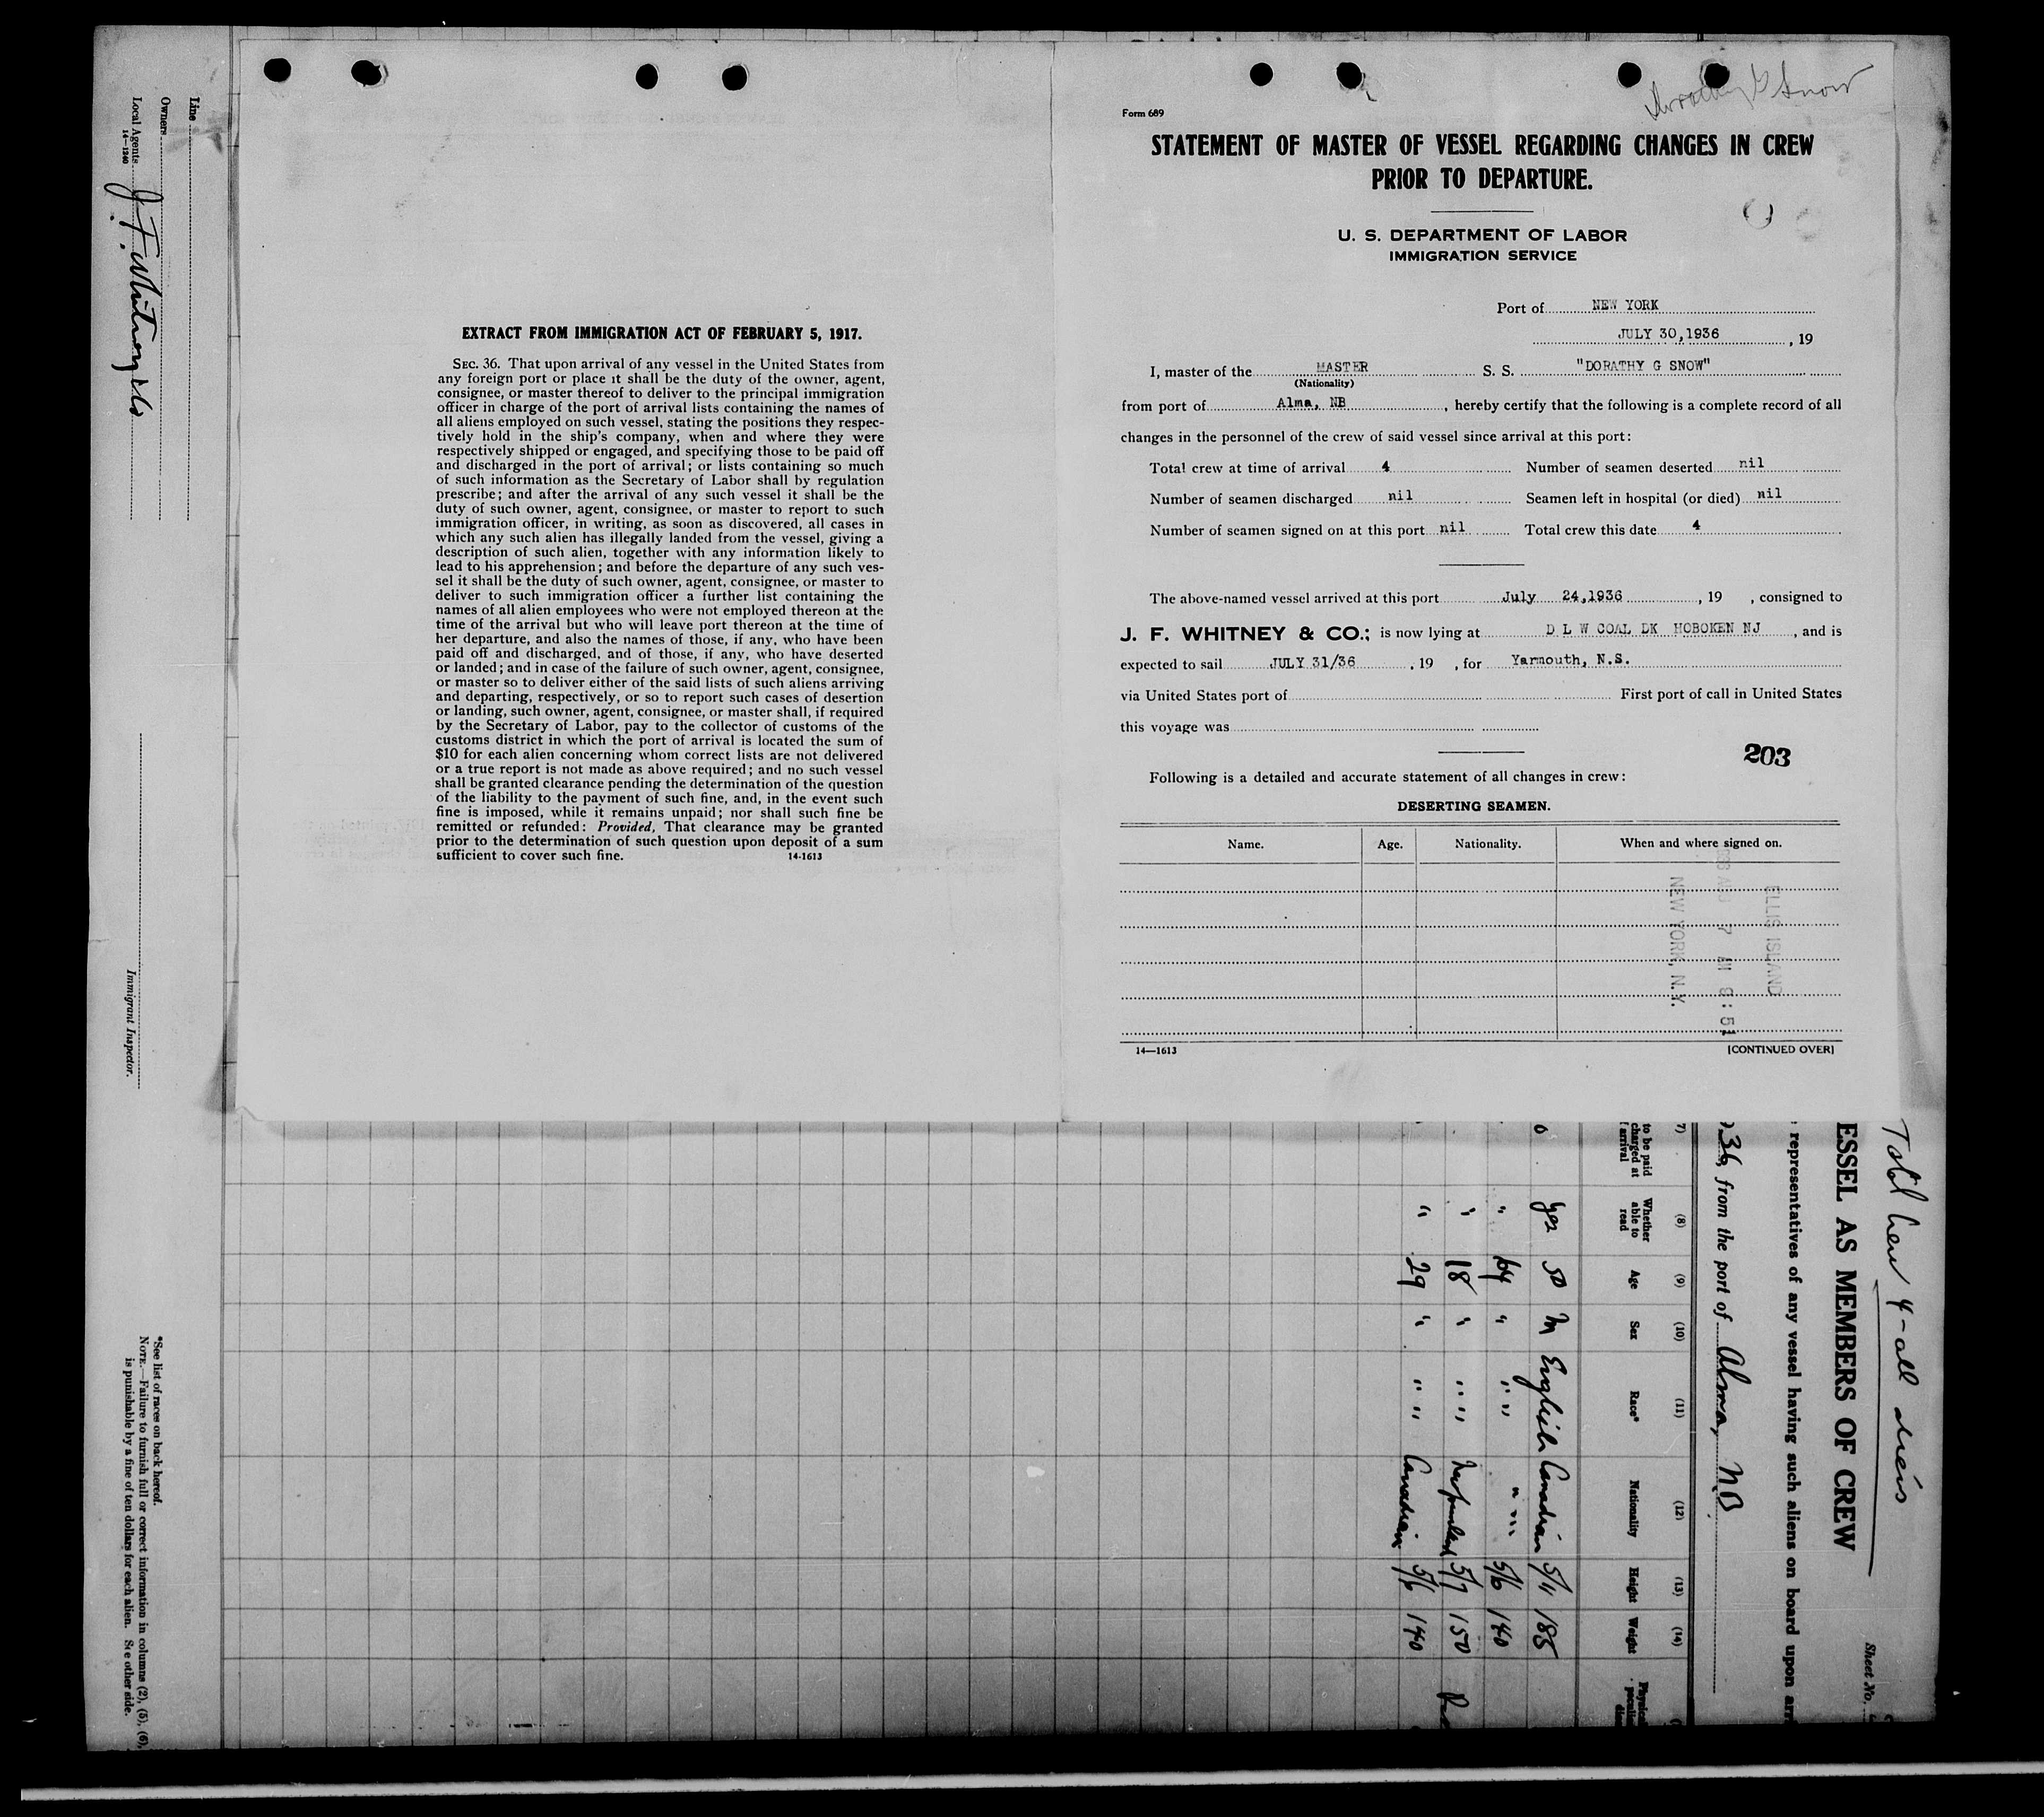 Line
Owners
Local Agents J. F. Whitney & Co
14—1240
Immigrant Inspector.
*See list of races on back hereof.
NOTE.—Failure to furnish full or correct information in columns (2), (5), (6),
is punishable by a fine of ten dollars for each alien. See other side.
EXTRACT FROM IMMIGRATION ACT OF FEBRUARY 5, 1917.
SEC. 36. That upon arrival of any vessel in the United States from
any foreign port or place it shall be the duty of the owner, agent,
consignee, or master thereof to deliver to the principal immigration
officer in charge of the port of arrival lists containing the names of
all aliens employed on such vessel, stating the positions they respec-
tively hold in the ship's company, when and where they were
respectively shipped or engaged, and specifying those to be paid off
and discharged in the port of arrival; or lists containing so much
of such information as the Secretary of Labor shall by regulation
prescribe; and after the arrival of any such vessel it shall be the
duty of such owner, agent, consignee, or master to report to such
immigration officer, in writing, as soon as discovered, all cases in
which any such alien has illegally landed from the vessel, giving a
description of such alien, together with any information likely to
lead to his apprehension; and before the departure of any such ves-
sel it shall be the duty of such owner, agent, consignee, or master to
deliver to such immigration officer a further list containing the
names of all alien employees who were not employed thereon at the
time of the arrival but who will leave port thereon at the time of
her departure, and also the names of those, if any, who have been
paid off and discharged, and of those, if any, who have deserted
or landed; and in case of the failure of such owner, agent, consignee,
or master so to deliver either of the said lists of such aliens arriving
and departing, respectively, or so to report such cases of desertion
or landing, such owner, agent, consignee, or master shall, if required
by the Secretary of Labor, pay to the collector of customs of the
customs district in which the port of arrival is located the sum of
$10 for each alien concerning whom correct lists are not delivered
or a true report is not made as above required; and no such vessel
shall be granted clearance pending the determination of the question
of the liability to the payment of such fine, and, in the event such
fine is imposed, while it remains unpaid; nor shall such fine be
remitted or refunded: Provided, That clearance may be granted
prior to the determination of such question upon deposit of a sum
sufficient to cover such fine. 14-1613
Dorothy G Snow
Form 689
STATEMENT OF MASTER OF VESSEL REGARDING CHANGES IN CREW
PRIOR TO DEPARTURE.
U. S. DEPARTMENT OF LABOR
IMMIGRATION SERVICE
Port of NEW YORK
JULY 30,1936 , 19
I, master of the MASTER S. S. "DORATHY G SNOW"
(Nationality)
from port of Alma, NB , hereby certify that the following is a complete record of all
changes in the personnel of the crew of said vessel since arrival at this port:
Total crew at time of arrival 4 Number of seamen deserted nil
Number of seamen discharged nil Seamen left in hospital (or died) nil
Number of seamen signed on at this port nil Total crew this date 4
The above-named vessel arrived at this port July 24,1936 , 19 , consigned to
J. F. WHITNEY & CO.; is now lying at D L W COAL DK HOBOKEN NJ , and is
expected to sail JULY 31/36 , 19 , for Yarmouth, N.S.
via United States port of First port of call in United States
this voyage was
203
Following is a detailed and accurate statement of all changes in crew:
DESERTING SEAMEN.
Name. Age. Nationality. When and where signed on.
ELLIS ISLAND
7 AM 9:51
NEW YORK, N.Y.
14—1613 [CONTINUED OVER]
Total Crew 4 - all
Sheet No.
ESSEL AS MEMBERS OF CREW
representatives of any vessel having such aliens on board upon arr
36, from the port of Alma, NB.
7) (8) (9) (10) (11) (12) (13) (14)
to be paid
charged at
arrival
Whether
able to
read
Age Sex Race* Nationality Height Weight
Physical
yes 50 M English Canadian 5/11 185
" 64 " " " " " 5/6 140
" 18 " " " 5/7 150
" 29 " " " Canadian 5/6 140